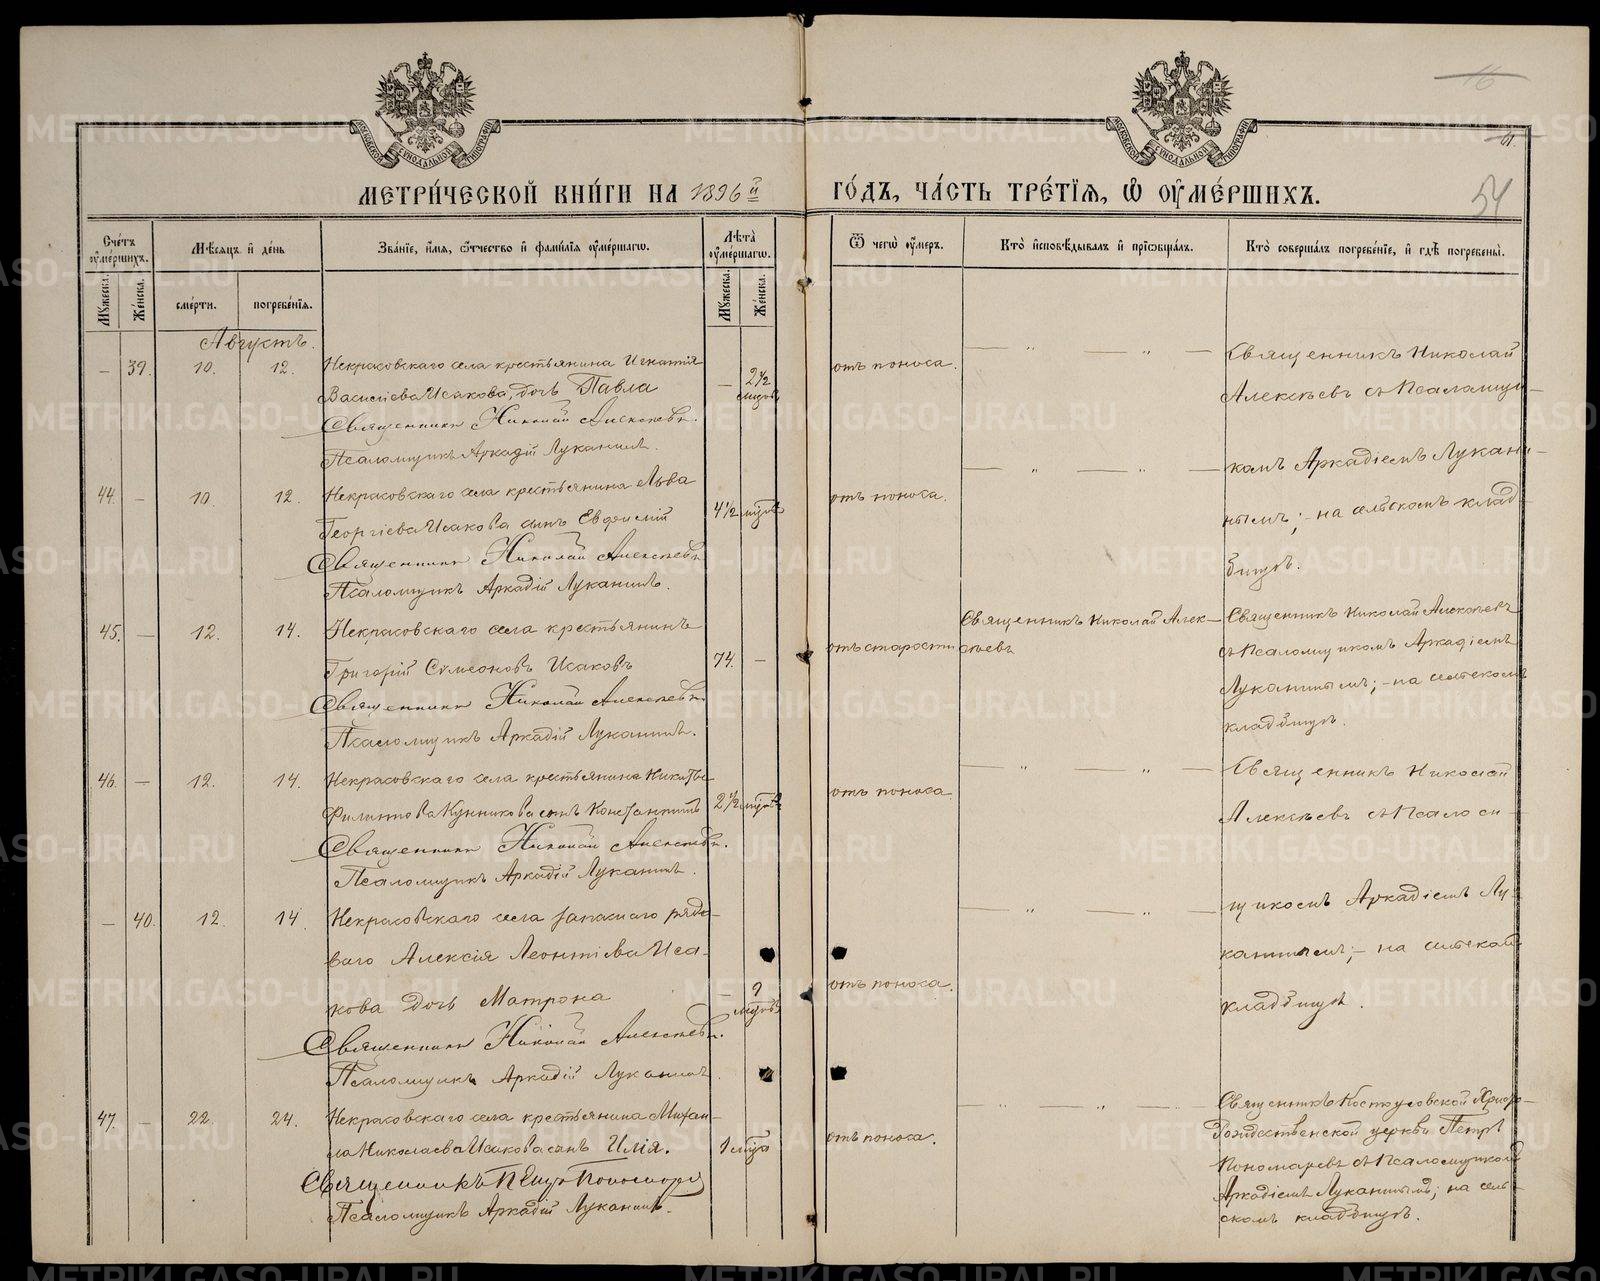 16
61.
54
МЕТРИ́ЧЕСКОЙ КНИ́ГИ НА 1896 й ГО́ДЪ, ЧА́СТЬ ТРЕ́ТЇЯ, Ѽ ОУ҆МЕ́РШИХЪ.
Сче́тъ оу҆ме́ршихъ.
Мꙋжеска.
Же́нска.
Мѣ́сяцъ и҆ де́нь
сме́рти.
погребе́нїя.
Зва́нїе, и҆́мя, ѻ҆́тчество и҆ фами́лїя оу҆ме́ршагѡ.
Лѣ́та оу҆ме́ршагѡ.
Мꙋжеска.
Же́нска.
Ѿ чегѡ̀ оу҆́меръ.
Кто̀ и҆сповѣ́дывалъ и҆ прїѡбща́лъ.
Кто̀ соверша́лъ погребе́нїе, и҆ гдѣ̀ погребены̀.
Августъ.
— 39. 10. 12. Некрасовскаго села крестьянина Игнатія
Василіева Исакова, дочь Павла
— 2½ мѣсяц.
отъ поноса.
— " — " —
Священникъ Николай Алексѣевъ.
Псаломщикъ Аркадій Луканинъ.
Священникъ Николай
Алексѣевъ съ Псаломщи-
комъ Аркадіемъ Лукани-
нымъ; - на сельскомъ клад-
бищѣ.
44. — 10. 12. Некрасовскаго села крестьянина Льва
Георгіева Исакова сынъ Евфимій
4½
отъ поноса.
— " — " —
Священникъ Николай Алексѣевъ
Псаломщикъ Аркадій Луканинъ.
45. — 12. 14. Некрасовскаго села крестьянинъ
Григорій Симеоновъ Исаковъ
74. —
отъ старости
Священникъ Николай Алек-
сѣевъ
Священникъ Николай Алексѣевъ
Псаломщикъ Аркадій Луканинъ.
Священникъ Николай Алексѣевъ
съ Псаломщикомъ Аркадіемъ
Луканинымъ; - на сельскомъ
кладбищѣ.
46. — 12. 14. Некрасовскаго села крестьянина Никиты
Филиппова Кунникова сынъ Константинъ
2½
отъ поноса
— " — " —
Священникъ Николай Алексѣевъ.
Псаломщикъ Аркадій Луканинъ.
Священникъ Николай
Алексѣевъ съ Псалом-
щикомъ Аркадіемъ Лу-
канинымъ; - на сельскомъ
кладбищѣ.
— 40. 12. 14. Некрасовскаго села запаснаго рядо-
ваго Алексія Леонтіева Иса-
кова дочь Матрона
— 9
отъ поноса.
— " — " —
Священникъ Николай Алексѣевъ.
Псаломщикъ Аркадій Луканинъ
47. — 22. 24. Некрасовскаго села крестьянина Михаи-
ла Николаева Исакова сынъ Илія.
1
отъ поноса.
— " — " —
Священникъ Петръ Пономаревъ
Псаломщикъ Аркадій Луканинъ.
Священникъ Костоусовской Христо-
Рождественской церкви Петръ
Пономаревъ съ Псаломщикомъ
Аркадіемъ Луканинымъ; на сель-
скомъ кладбищѣ.
METRIKI.GASO-URAL.RU